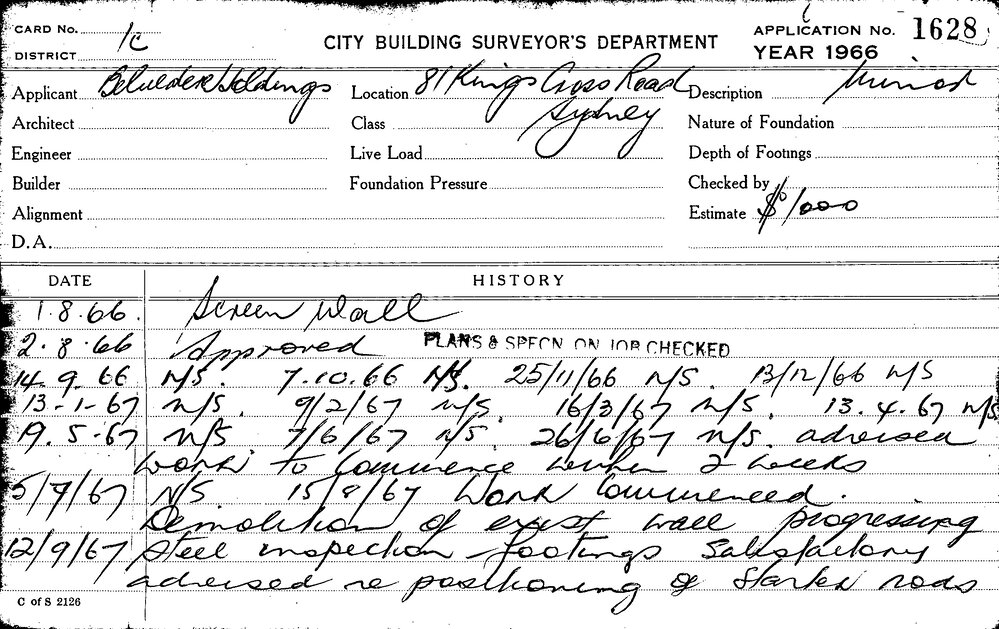 CARD No. 1c
CITY BUILDING SURVEYOR'S DEPARTMENT
APPLICATION No. 1628
DISTRICT
YEAR 1966
Applicant Belvedere Holdings Location 81 Kings Cross Road Description Minor
Architect Class Sydney Nature of Foundation
Engineer Live Load Depth of Footings
Builder Foundation Pressure Checked by
Alignment Estimate $1000
D.A.
DATE HISTORY
1.8.66. Screen Wall
2.8.66 Approved PLANS & SPECN ON JOB CHECKED
14.9.66 N/S. 7.10.66 N/S. 25/11/66 N/S. 13/12/66 N/S
13-1-67 N/S. 9/2/67 N/S. 16/3/67 N/S. 13.4.67 N/S
19.5.67 N/S 7/6/67 N/S 26/6/67 N/S. advised
work to commence within 2 weeks
5/7/67 N/S 15/8/67 Work Commenced.
Demolition of exist wall progressing
12/9/67 Steel inspection - footings Satisfactory
advised re positioning of starter rods
C of S 2126